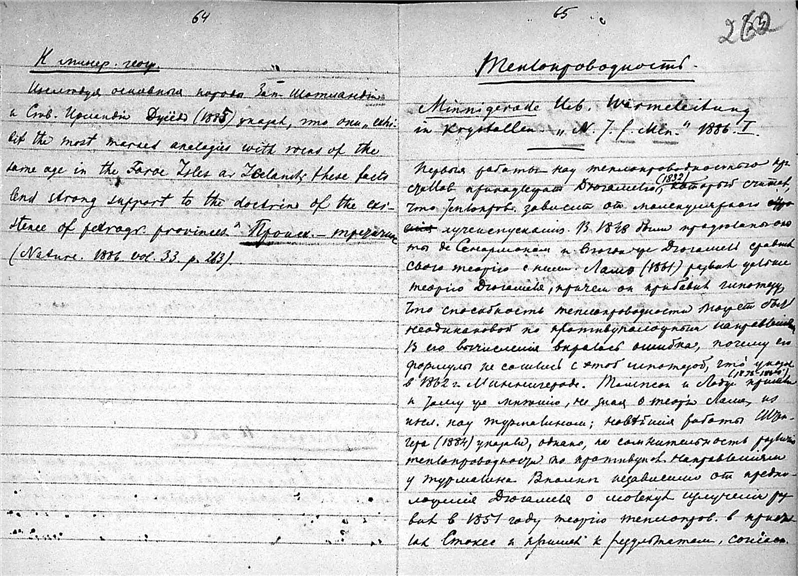 64
К минер. геогр.
Изследуя основныя породы Зап. Шотландіи
и Сев. Ирландіи Джёдъ (1885) указал, что они „exhi-
bit the most marked analogies with rocks of the
same age in the Faroe Isles as Iceland; these facts
lend strong support to the doctrine of the exi-
stence of petrogr. provinces“. Происх. – третичн.
(Nature. 1886. vol. 33. p. 263).
65
262
Теплопроводность.
Minnigerode Ueb. Wärmeleitung
in Krystallen „N. J. f. Min.“ 1886. I.
Первыя работы над теплопроводностью кри-
сталлов принадлежат Дюгамелю (1832), который считал,
что теплопров. зависит от молекулярного
лучеиспускания. В 1848 были произведены опы-
ты де Сенармоном и тогда же Дюгамель сравнил
свою теорію с ними. Ламэ (1861) развил дальше
теорію Дюгамеля, причем он прибавил гипотезу,
что способность теплопроводности может быть
неодинаковой по противуположным направленіям.
В его вычисления вкралась ошибка, почему его
формулы не сошлись с этой гипотезой, что указал
в 1862 г. Миннигероде. Томпсон и Лодж (1878-1880) пришли
к тому же мнению, не зная о теоріи Ламэ, из
изсл. над турмалином; новейшия работы
(1884) указали, однако, на сомнительность различія
теплопроводности по противупол. направлениям
у турмалина. Вполне независимо от предпо-
ложения Дюгамеля о молекул. излучении раз-
вил в 1851 году теорію теплопров. в кристал-
лах Стокес и пришел к результатам, согласн.